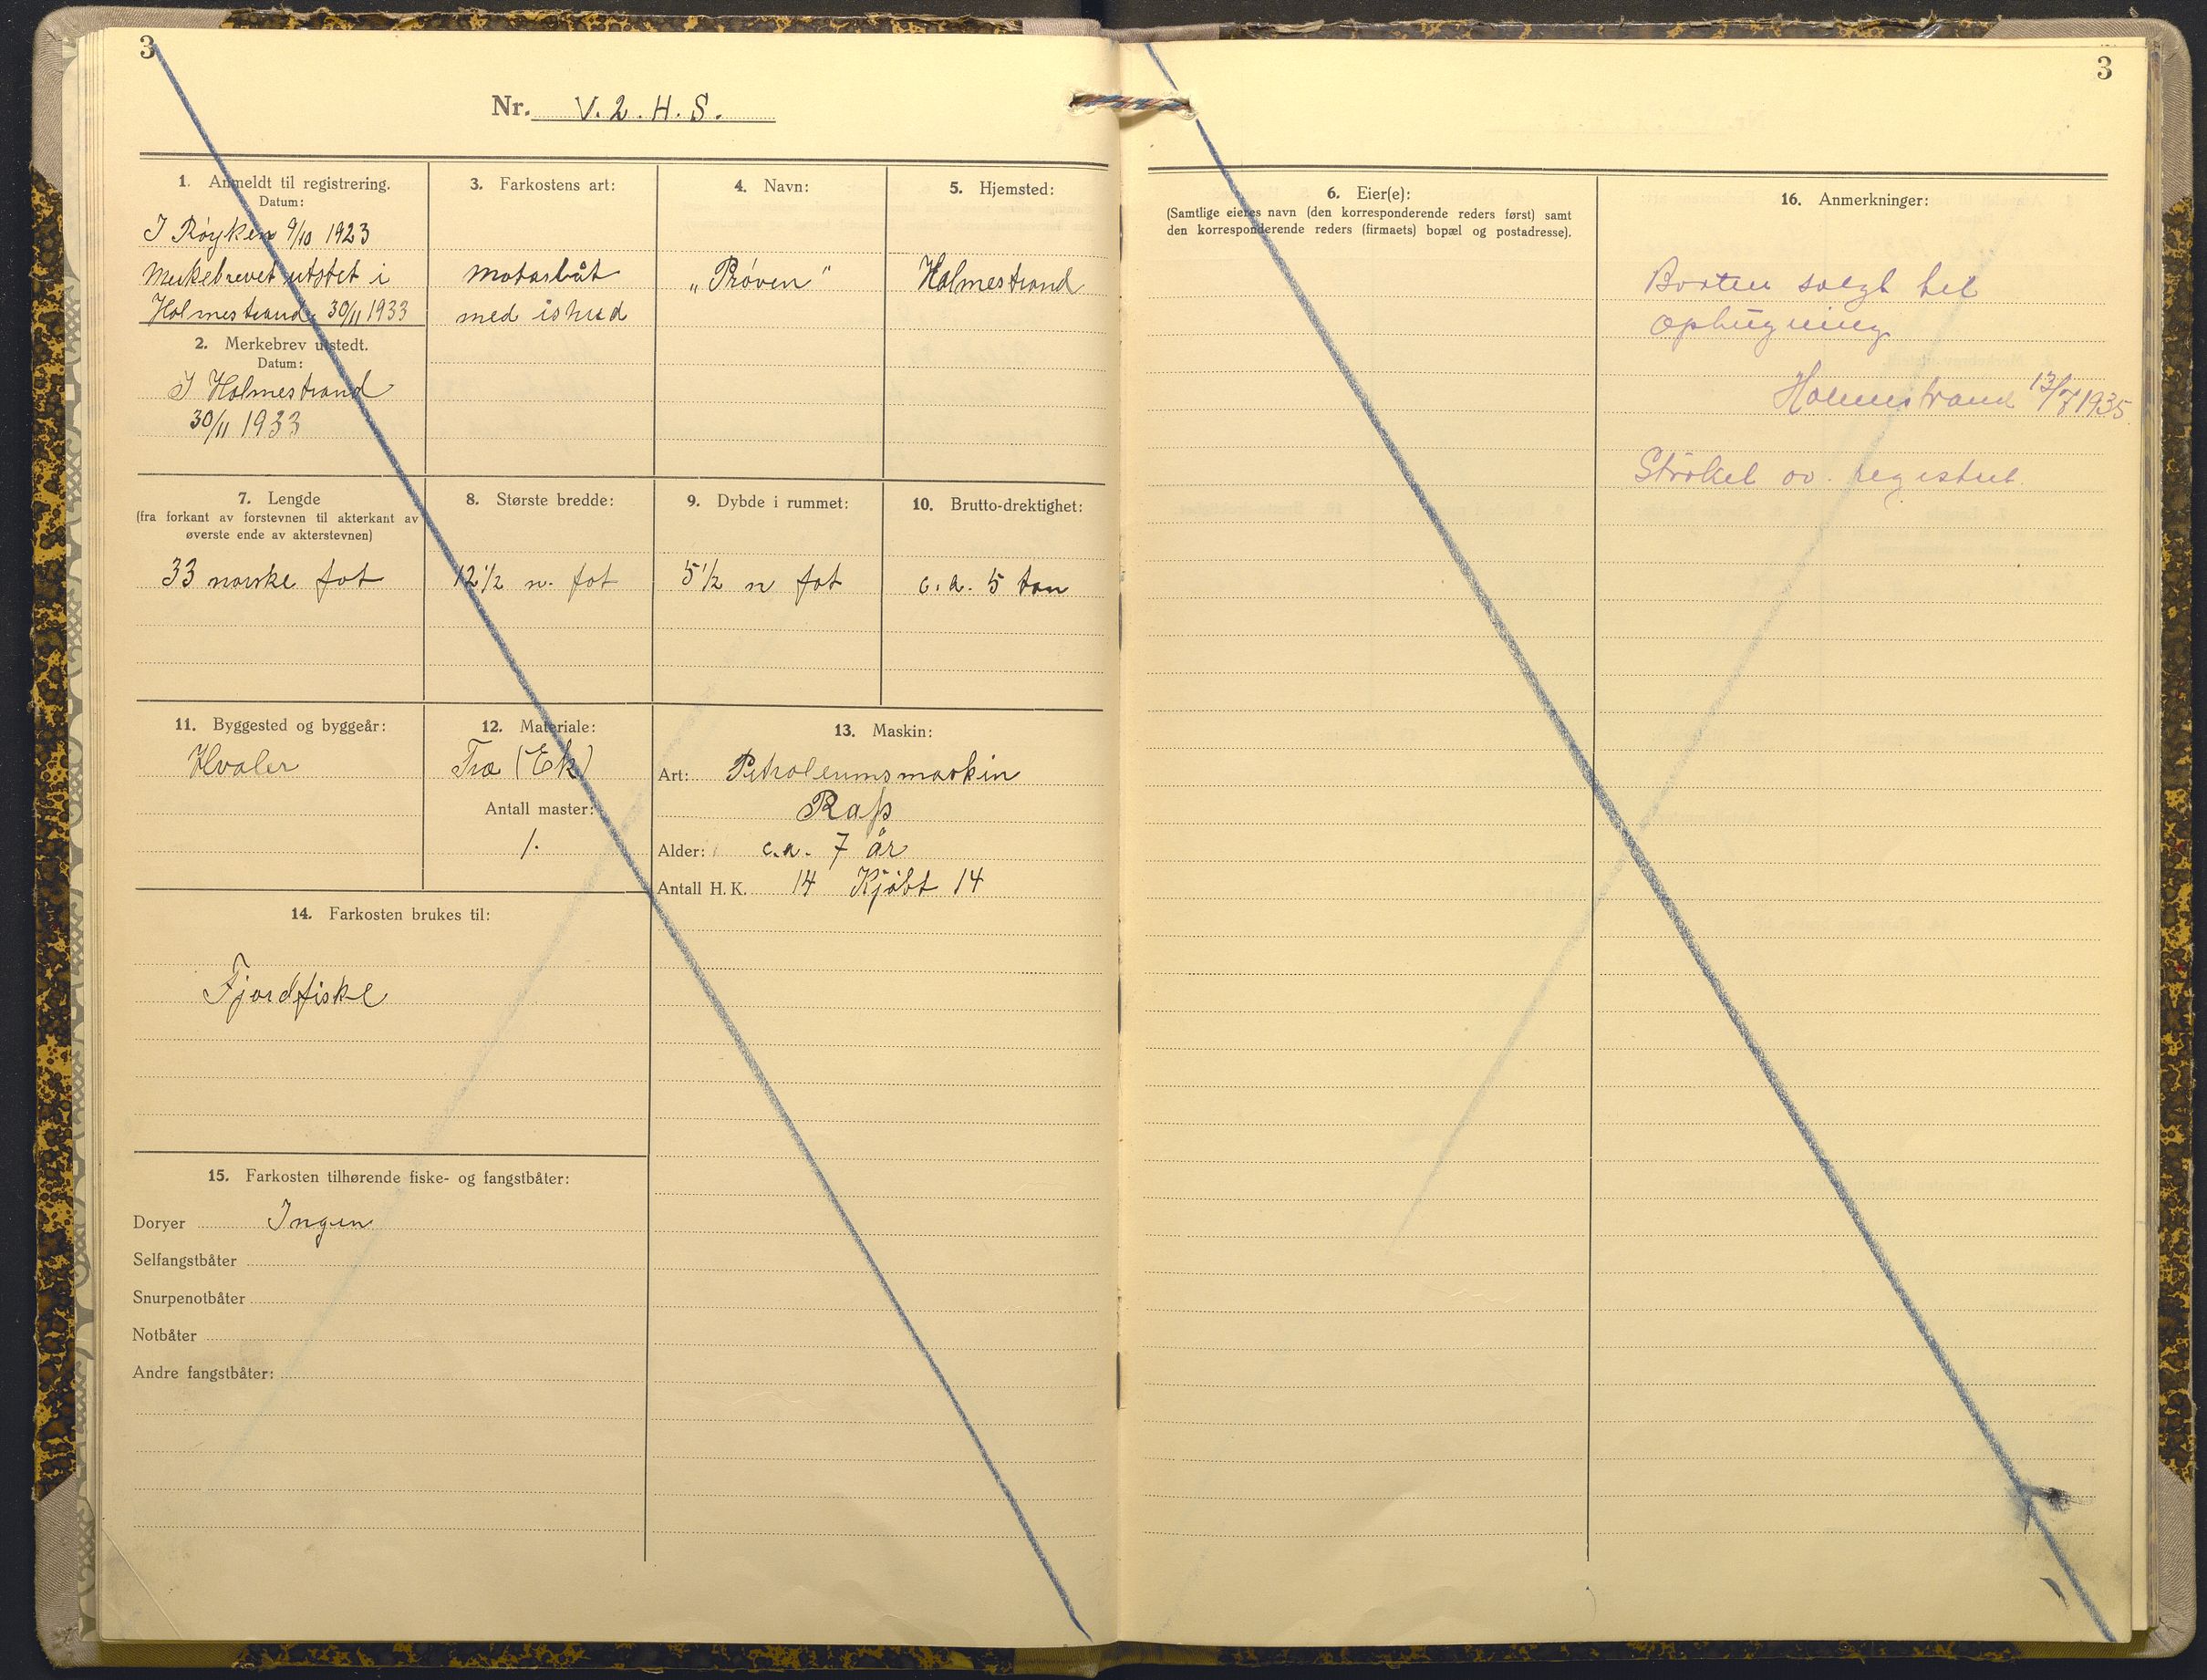 3
Nr. V. 2. H. S.
1. Anmeldt til registrering.
Datum:
I Røyken 9/10 1923
Merkebrevet utstet i
Holmestrand 30/11 1933
2. Merkebrev utstedt.
Datum:
I Holmestrand
30/11 1933
3. Farkostens art:
Motorbåt
med ishud
4. Navn:
„Prøven"
5. Hjemsted:
Holmestrand
7. Lengde
(fra forkant av forstevnen til akterkant av
øverste ende av akterstevnen)
33 norske fot
8. Største bredde:
12 1/2 n. fot
9. Dybde i rummet:
5 1/2 n fot
10. Brutto-drektighet:
c. a. 5 ton
11. Byggested og byggeår:
Hvaler
12. Materiale:
Træ (Ek)
Antall master:
1.
13. Maskin:
Art: Petroleumsmaskin
Rap
Alder: c.a. 7 år
Antall H. K. 14 Kjøbt 14
14. Farkosten brukes til:
Fjordfiske
15. Farkosten tilhørende fiske- og fangstbåter:
Doryer Ingen
Selfangstbåter
Snurpenotbåter
Notbåter
Andre fangstbåter:
3
6. Eier(e):
(Samtlige eieres navn (den korresponderende reders først) samt
den korresponderende reders (firmaets) bopæl og postadresse).
16. Anmerkninger:
Baaten solgt til
ophugning
Holmestrand 13/7 1935.
Strøket av registret.